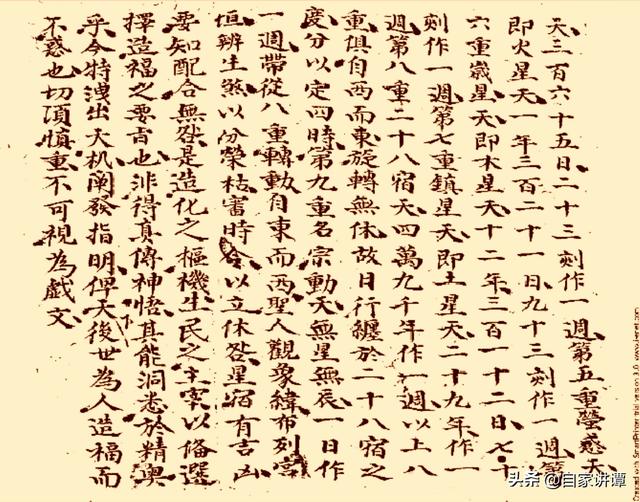 天三百六十五日二十三刻作一週第五重熒惑天
即火星天一年三百二十一日九十三刻作一週第
六重歲星天即木星天十二年三百一十二日七十
刻作一週第七重鎮星天即土星天二十九年作一
週第八重二十八宿天四萬九千年作一週以上八
重俱自西而東旋轉無休故日行纏於二十八宿之
度分以定四時第九重名宗動天無星無辰一日作
一週帶從八重轉動自東而西聖人觀象緯布列宮
垣辨生煞以分榮枯審時令以立休咎星宿有吉凶
要知配合無咎是造化之樞機生民之主宰以俻選
擇造福之要旨也非得真傳神悟其能洞悉於精奧
乎今特洩出天机阐發指明俾天下後世為人造福而
不惑也切須慎重不可視為戲文
头条 @自家讲谭